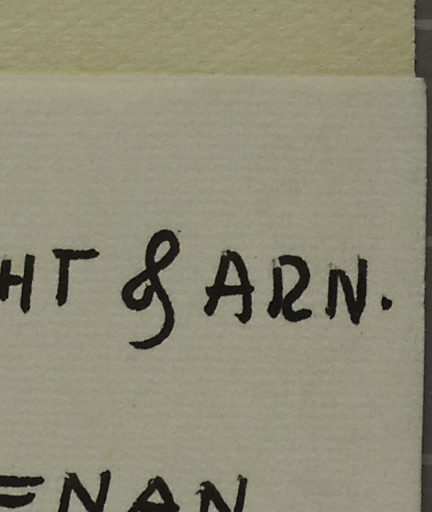 HT & ARN.
=NAN